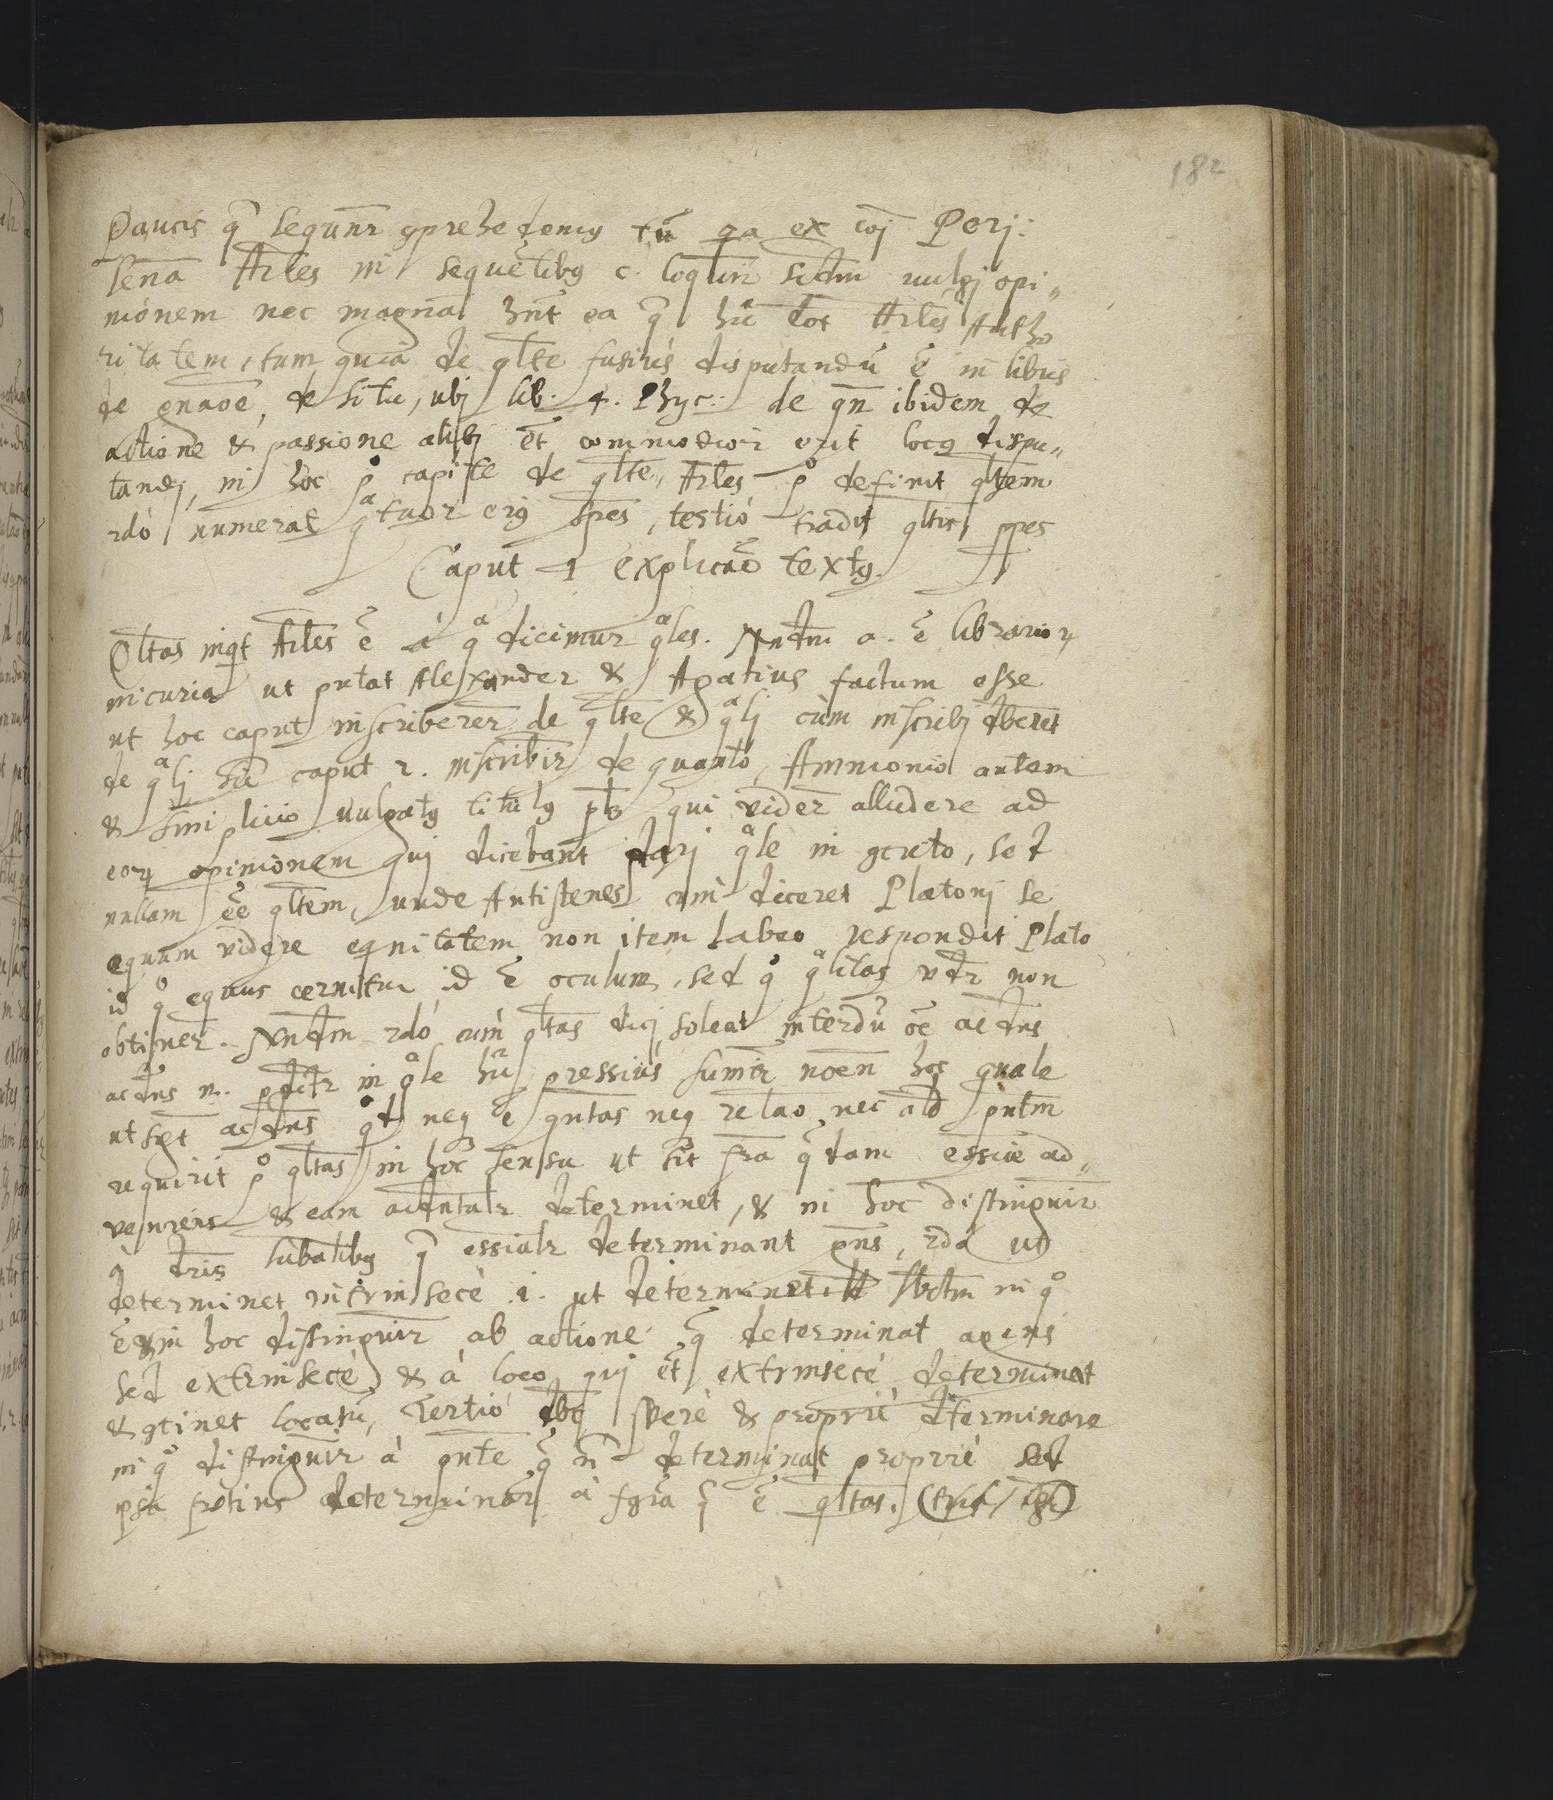 182
Paucis q̄ sequnr̄ ꝯprehedemꝰ tū qa ex coj̄ Perj:
senā Arles in sequētibꝰ c. loqtur̄ sicdm̄ uulgi opi„
nionem nec magnā hn̄t ea q̄ hīc dot Arles Autho
ritatem, tum quia de qlte fusius disputandū ē in libris
de gnaōe, de situ, ubj lib. 4. Phyc: de qn̄ ibidem de
actione & passione alibj et̄ commodior erit locꝰ dispu„
tandj, in hoc po capite de qlte, Arles po definit qltem
2do numerat qatuor eiꝰ spēs, tertiò tradit qltis ppes
Caput 1 explicaō textꝰ.
Qltas inqt Arles ē à qa dicimur qales. Nndm̄ a. ē librarioꝝ
incuria ut putat Alexander & Agatius factum esse
ut hoc caput inscriberer̄ de qlte & qalj cùm inscribj dberet
de qalj sic̄ caput 2. inscribir̄ de quanto, Ammonio autem
& Simplicio uulgatꝰ titulꝰ plꝫ qui vider̄ alludere ad
eoꝝ opinionem quj dicebant darj qale in ꝯcreto, sed
nullam ēē qltem, unde Antistenes cùm diceret Platonj se
equum videre equitatem non item labeo respondit Plato
id qo equus cernitur id ē oculum, sed qo qalitas vdr̄ non
obtiner. Nndm̄ 2dò cùm qltas dicj soleat interdū oē acdns
acdns n. pdcatr̄ in qale hīc pressius sumitr̄ noēn hoc quale
ut sgt̄ acdns qod neqꝫ ē qntas neqꝫ relaō nec ald pntm̄
rquirit po qltas in hoc sensu ut sit fra q̄dam essiae ad„
veniens & eam acdntalr̄ determinet, & in hoc distinguir̄
à dris subalibꝰ q̄ essialr̄ determinant gns, 2do ut
determinet intrinsecè .i. ut determinet sbctm̄ in qo
ē & in hoc distinguir̄ ab actione q̄ determinat agens
sed extrinsecè & à loco quj et̄ extrinsecè determinat
& ꝯtinet locatū, Tertiò dbt̄ verè & propriè dterminare
in qo distinguir̄ à qnte q̄ n̄ determinat propriè sed
ipsa potius determinar̄ à fgrā q̄ ē qltas.